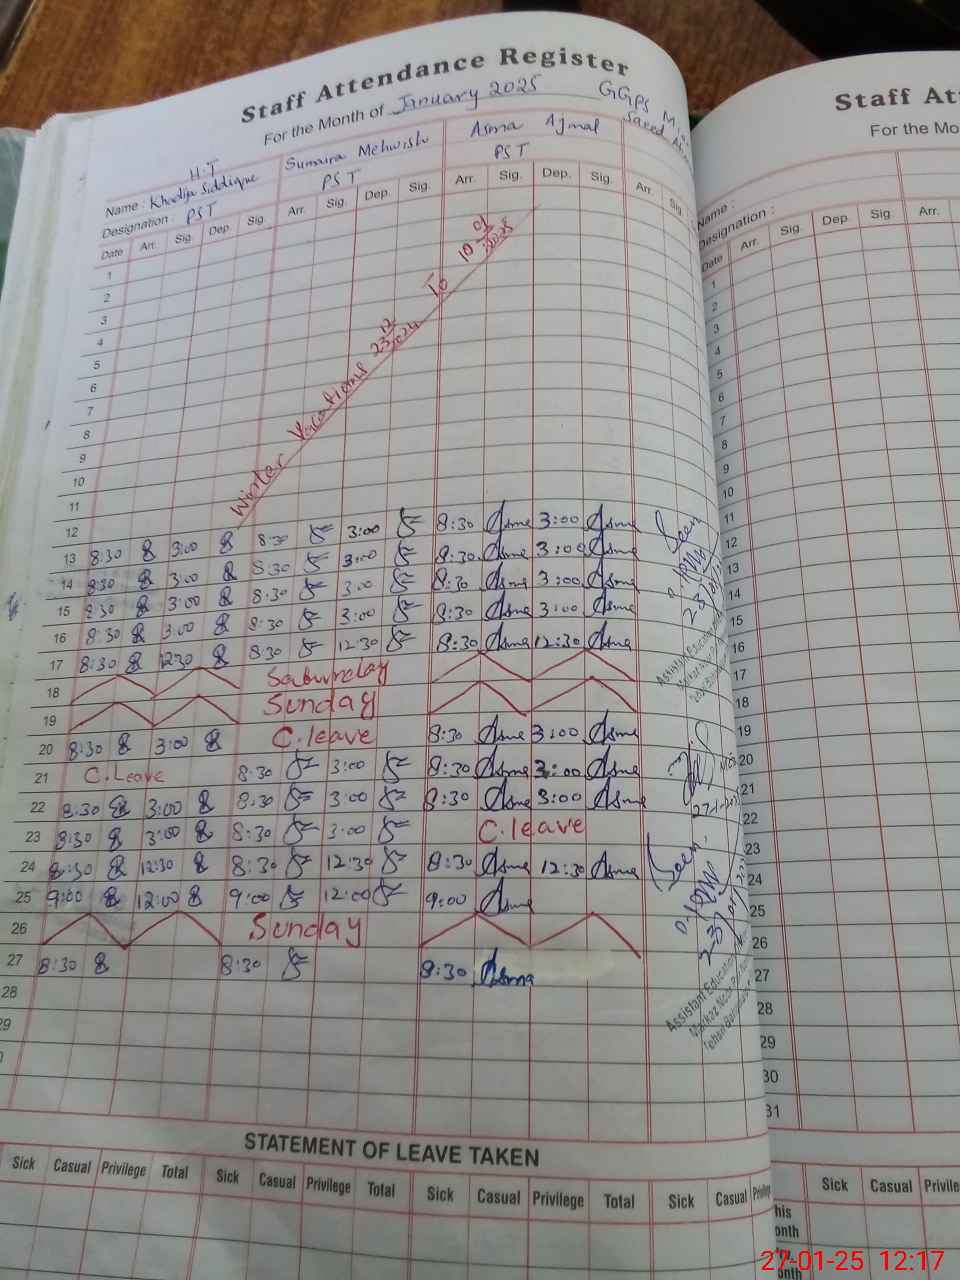 Staff Attendance Register
For the Month of January 2025
GGPS
H.T
Name : Khadija Siddique Sumaira Mehwish Asma Ajmal
Designation : PST PST PST
Date Arr. Sig. Dep. Sig. Arr. Sig. Dep. Sig. Arr. Sig. Dep. Sig. Arr. Sig.
1
2
3
4
5
6
7
8
9
10
11
12
Winter Vacations 23 12 2024 To 10 01 2025
8:30 3:00 8:30 Asma 3:00 Asma
13 8:30 3:00 8:30 3:00 8:30 Asma 3:00 Asma
14 8:30 3:00 8:30 3:00 8:30 Asma 3:00 Asma
15 8:30 3:00 8:30 3:00 8:30 Asma 3:00 Asma
16 8:30 3:00 8:30 12:30 8:30 Asma 12:30 Asma
17 8:30 12:30 Saturday
18 Sunday
19 C.leave 8:30 Asma 3:00 Asma
20 8:30 3:00
21 C.Leave 8:30 3:00 8:30 Asma 3:00 Asma
22 8:30 3:00 8:30 3:00 8:30 Asma 3:00 Asma
23 8:30 3:00 8:30 3:00 C.leave
24 8:30 12:30 8:30 12:30 8:30 Asma 12:30 Asma
25 9:00 12:00 9:00 12:00 9:00 Asma
26 Sunday
27 8:30 8:30 8:30 Asma
28
29
Seen
Assistant Education
Seen
Assistant Education
STATEMENT OF LEAVE TAKEN
Sick Casual Privilege Total Sick Casual Privilege Total Sick Casual Privilege Total Sick Casual
Staff At
For the Mo
Name :
Designation :
Date Arr. Sig. Dep. Sig. Arr.
1
2
3
4
5
6
7
8
9
10
11
12
13
14
15
16
17
18
19
20
21
22
23
24
25
26
27
28
29
30
31
Sick Casual Privile
27-01-25 12:17